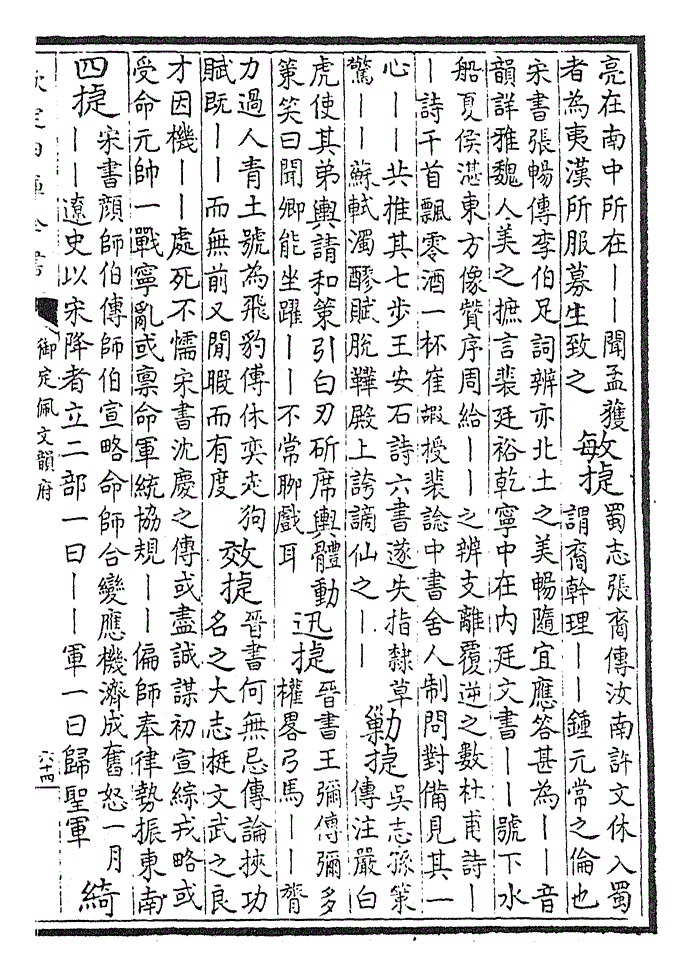 亮在南中所在丨丨聞孟獲
者為夷漢所服募生致之
敏捷
蜀志張裔傳汝南許文休入蜀
謂裔幹理丨丨鍾元常之倫也
宋書張暢傳李伯足詞辨亦北土之美暢隨宜應答甚為丨丨音
韻詳雅魏人美之摭言裴廷裕乾寧中在内廷文書丨丨號下水
船夏侯湛東方像贊序周給丨丨之辨支離覆逆之數杜甫詩丨
丨詩千首飄零酒一杯崔嘏授裴諗中書舍人制問對備見其一
心丨丨共推其七步王安石詩六書遂失指隸草
驚丨丨蘇軾濁醪賦脫鞾殿上誇謫仙之丨丨
勦捷
吳志孫策
傳注嚴白
虎使其弟輿請和策引白刃斫席輿體動
策笑曰聞卿能坐躍丨丨不常聊戲耳
迅捷
晉書王彌傳彌多
權畧弓馬丨丨膂
力過人青土號為飛豹傅休奕走狗
賦既丨丨而無前又閒暇而有度
效捷
晉書何無忌傳論挾功
名之大志挺文武之良
才因機丨丨處死不懦宋書沈慶之傳或盡誠謀初宣綜戎略或
受命元帥一戰寧亂或稟命軍統協規丨丨偏師奉律勢振東南
四捷
宋書顏師伯傳師伯宣略命師合變應機濟成奮怒一月
丨丨遼史以宋降者立二部一曰丨丨軍一曰歸聖軍
綺
御定佩文韻府
六十四